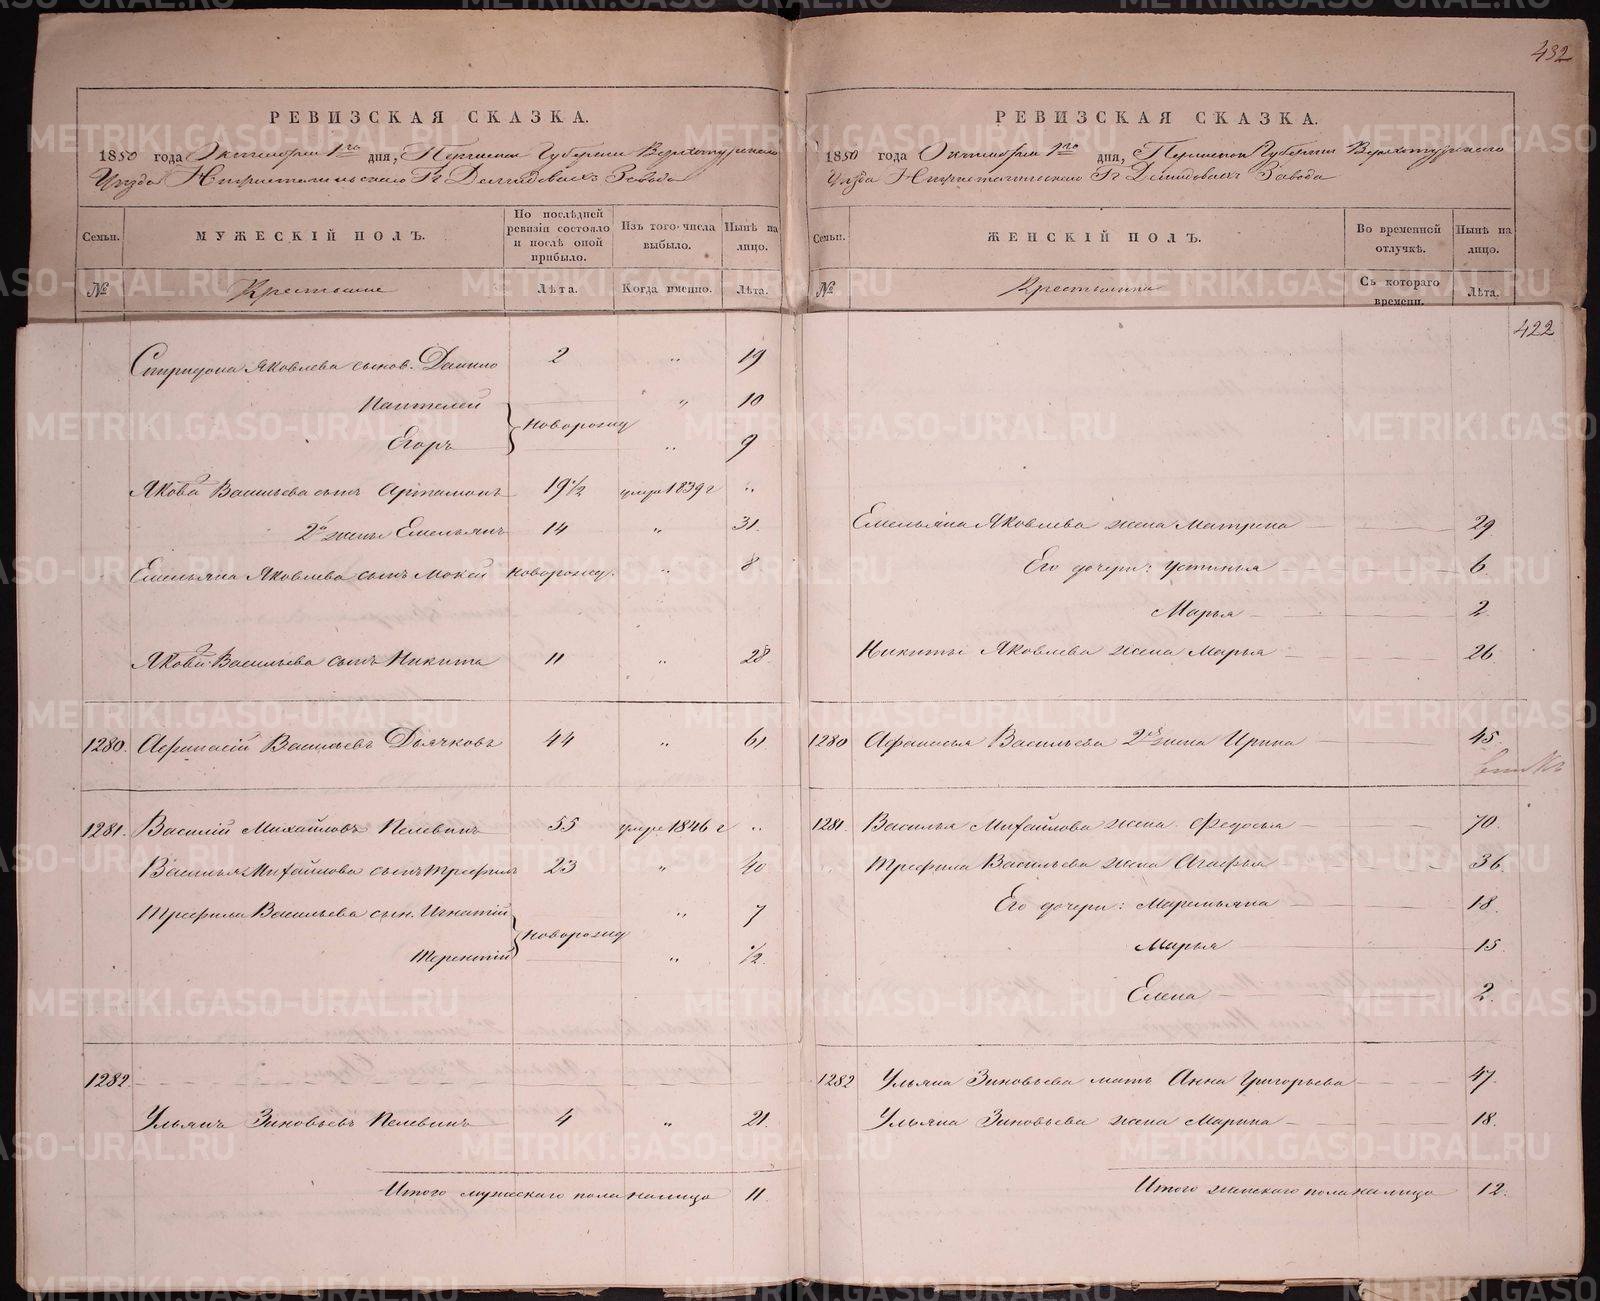 432
РЕВИЗСКАЯ СКАЗКА.
1850 года Октября 1го дня, Пермской Губернии Верхотурского
Уезда Нижнетагильского Гг Демидовых Завода
Семьи. МУЖЕСКІЙ ПОЛЪ. По послѣдней ревизіи состояло и послѣ оной прибыло. Изъ того числа выбыло. Нынѣ на лицо.
№ Крестьяне Лѣта. Когда именно. Лѣта.
Спиридона Яковлева сынов. Данило 2 " 19
Пантелей " 10
новорожд
Егоръ " 9
Якова Васильева сынъ Артамонъ 19 1/2 умре 1839 г "
2й жены Емельянъ 14 " 31.
Емельяна Яковлева сынъ Мокей новорожд. " 8
Якова Васильева сынъ Никита 11 " 28
1280. Афанасій Васильевъ Дьячковъ 44 " 61
1281. Василій Михайловъ Пелевинъ 55 умре 1846 г "
Василья Михайлова сынъ Трефилъ 23 " 40
Трефила Васильева сын. Игнатій " 7
новорожд
Терентій " 1/2.
1282.
Ульянъ Зиновьевъ Пелевинъ 4 " 21.
Итого мужескаго пола налицо 11.
РЕВИЗСКАЯ СКАЗКА.
1850 года Октября 1го дня, Пермской Губерніи Верхотурского
Уезда Нижнетагильского Гг Демидовыхъ Завода
Семьи. ЖЕНСКІЙ ПОЛЪ. Во временной отлучкѣ. Нынѣ на лицо.
№ Крестьянки Съ котораго времени. Лѣта.
422
Емельяна Яковлева жена Матрена 29
Его дочери: Устинья 6.
Марья 2.
Никиты Яковлева жена Марья 26
1280 Афанасья Васильева 2я жена Ирина 45.
1281. Василья Михайлова жена Федосья 70.
Трефила Васильева жена Агафья 36.
Его дочери: Маремьяна 18.
Марья 15.
Елена 2.
1282 Ульяна Зиновьева мать Анна Григорьева 47.
Ульяна Зиновьева жена Марина 18.
Итого женскаго пола налицо 12.
METRIKI.GASO-URAL.RU